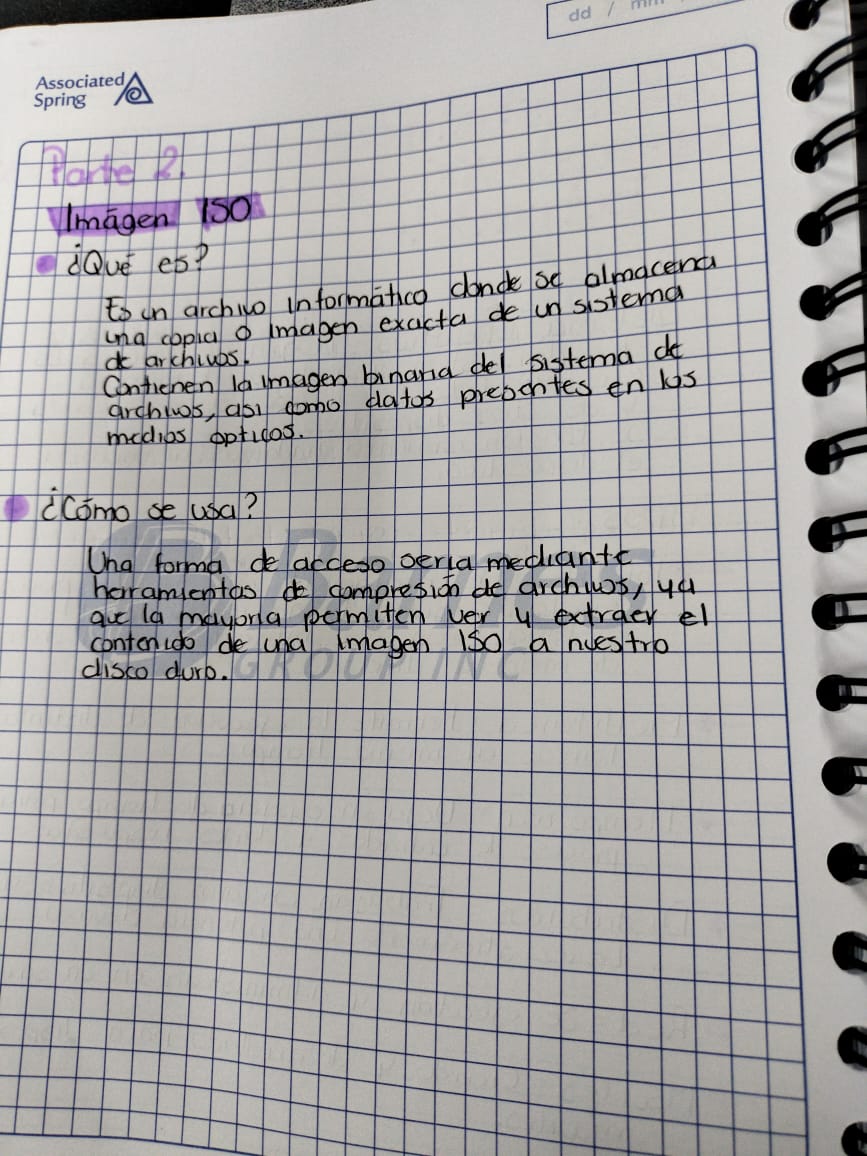 dd / mm
Associated
Spring
Parte 2.
Imágen ISO
¿Qué es?
Es un archivo informático donde se almacena
una copia o imagen exacta de un sistema
de archivos.
Contienen la imagen binaria del sistema de
archivos, asi como datos presentes en los
medios opticos.
¿Cómo se usa?
Una forma de acceso seria mediante
herramientas de compresión de archivos, ya
que la mayoria permiten ver y extraer el
contenido de una imagen ISO a nuestro
disco duro.
Barnes
GROUP INC